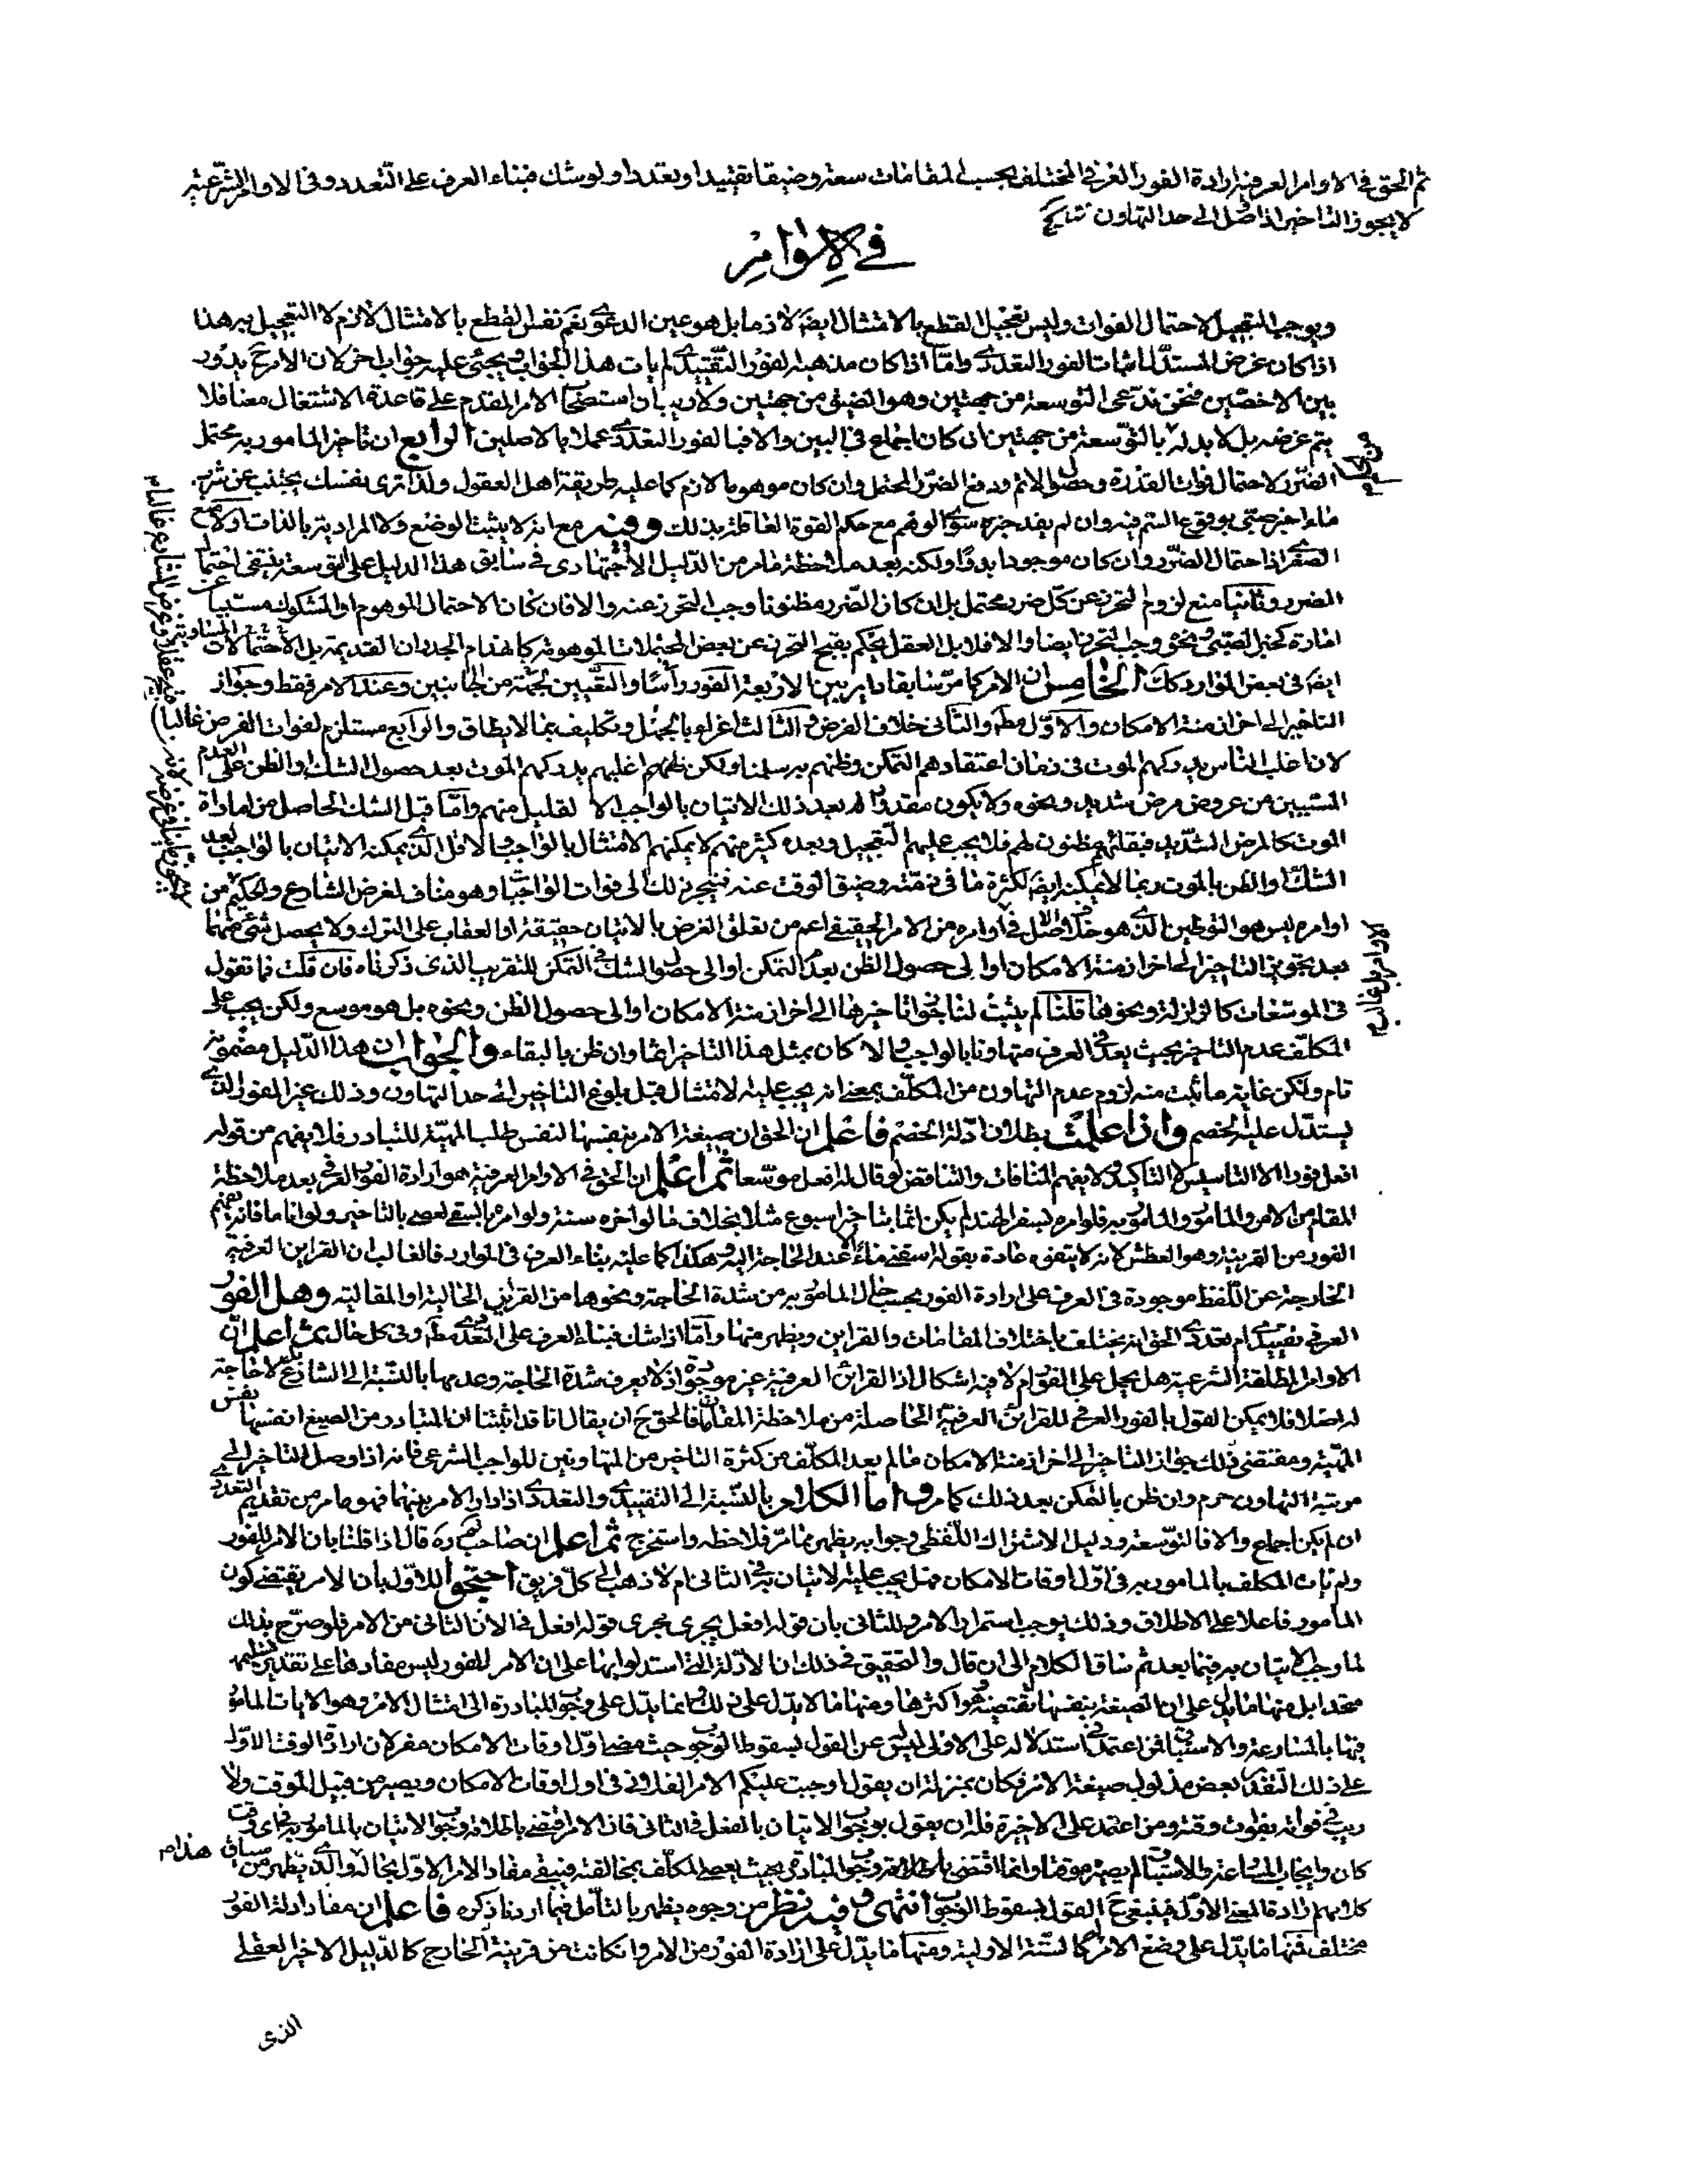 ثم الحق في الاوامر العرفية ارادة الفور العرفي المختلف بحسب المقامات سعة وضيقا تقييدا وتعددا ولو شك فبناء العرف على التعدد وفي الاوامر الشرعية
لا يجوز التاخير اذا وصل الى حد التهاون
في الاوامر
ويوجب التعجيل لاحتمال الفوات وليس تعجيل القطع بالامتثال ايضا لازما بل هو عين الدعوى نعم نفس القطع بالامتثال لازم لا التعجيل به هذا
اذا كان غرض المستدل اثبات الفور التعددي واما اذا كان مذهبه الفور التقييدي لم يات هذا الجواب ويجئ عليه جواب اخر لان الامر ح يدور
بين الاخصين فنحن ندعى التوسعة من جهتين وهو الضيق من جهتين ولا ريب ان استصحاب الامر المقدم على قاعدة الاشتغال معنا فلا
يتم غرضه بل لا بد له بالتوسعة من جهتين ان كان اجماع في البين والا فبالفور التعددي عملا بالاصلين الرابع ان تاخير المامور به محتمل
الضرر لاحتمال فوات القدرة وحصول الاثم ودفع الضرر المحتمل وان كان موهوما لازم كما عليه طريقة اهل العقول ولذا ترى نفسك يجتنب عن شرب
ماء اخبر صبى بوقوع السم فيه وان لم يفد خبره سوى الوهم مع حكم القوة العاقلة بذلك وفيه مع انه لا يثبت الوضع ولا المرادية بالذات اولا منع
الصغرى اذ احتمال الضرر وان كان موجودا بدوا ولكنه بعد ملاحظة ما مر من الدليل الاجتهادى في سابق هذا الدليل على التوسعة ينتفى احتمال
الضرر وثانيا منع لزوم التحرز عن كل ضرر محتمل بل ان كان الضرر مظنونا وجب التحرز عنه والا فان كان الاحتمال الموهوم او المشكوك مسببا عن
امارة كخبر الصبى ونحوه وجب التحرز ايضا والا فلا بل العقل يحكم بقبح التحرز عن بعض المحتملات الموهومة كانهدام الجدران القديمة بل الاحتمالات المساوية
ايضا في بعض الموارد كك الخامس ان الامر كما مر سابقا داير بين الاربعة الفور راسا والتعيين لجهة من الجانبين وعند الامر فقط وجواز
التاخير الى اخر ازمنة الامكان والاول مط والثانى خلاف الفرض والثالث اغراء بالجهل وتكليف بما لا يطاق والرابع مستلزم لفوات الغرض غالبا
لان اغلب الناس يدركهم الموت في زمان اعتقادهم التمكن وظنهم به سلمنا ولكن ظنهم اغلبهم يدركهم الموت بعد حصول الشك او الظن على العدم
المسببين من عروض مرض شديد ونحوه ولا يكون مقدورا له بعد ذلك الاتيان بالواجب الا لقليل منهم واما قبل الشك الحاصل من امارة
الموت كالمرض الشديد فبقائهم مظنون لهم فلا يجب عليهم التعجيل وبعده كثير منهم لا يمكنهم الامتثال بالواجب والاقل الذي يمكنه الاتيان بالواجب بعد
الشك او الظن بالموت ربما لا يمكنه ايضا لكثرة ما في ذمته وضيق الوقت عنه فينجر ذلك الى فوات الواجبات وهو مناف لغرض الشارع والحكيم من
اوامره ليس هو التوطين الذي هو خلاف الاصل في اوامره من الامر الحقيقي اعم من تعلق الغرض بالاتيان حقيقة او العقاب على الترك ولا يحصل شئ منهما
بعد تجويز التاخير الى اخر ازمنة الامكان او الى حصول الظن بعدم التمكن او الى حصول الشك في التمكن للتقريب الذى ذكرناه فان قلت فما تقول
فى الموسعات كالزلزلة ونحوها قلنا لم يثبت لنا جواز تاخيرها الى اخر ازمنة الامكان او الى حصول الظن ونحوه بل هو موسع ولكن يجب على
المكلف عدم التاخير بحيث يعد في العرف متهاونا بالواجب والا كان بمثل هذا التاخير اثما وان ظن بالبقاء والجواب ان هذا الدليل مضمونه
تام ولكن غاية ما يثبت منه لزوم عدم التهاون من المكلف بمعنى انه يجب عليه الامتثال قبل بلوغ التاخير الى حد التهاون وذلك غير الفور الذي
يستدل عليه الخصم واذا علمت بطلان ادلة الخصم فاعلم ان الحق ان صيغة الامر بنفسها لنفس طلب المهية للتبادر فلا يفهم من قوله
افعل فورا الا التاسيس لا التاكيد ولا يفهم المنافات والتناقض لو قال له افعل موسعا ثم اعلم ان الحق في الاوامر العرفية هو ارادة الفور العرفي بعد ملاحظة
المقام من الامر والمامور والمامور به فلو امره بسفر الهند لم يكن اثما بتاخير اسبوع مثلا بخلاف ما لو اخره سنة ولو امره بالسقى لعصى بالتاخير ولو انا ما فانه يفهم
الفور من القرينة وهو العطش لانه لا يتفوه عادة بقوله اسقنى ماء الا عند الحاجة اليه وهكذا كما عليه بناء العرف في الموارد فالغالب ان القراين العرفية
الخارجة عن اللفظ موجودة في العرف على ارادة الفور بحسب حال المامور به من شدة الحاجة ونحوها من القراين الحالية او المقالية وهل الفور
العرفي تقييدي ام تعددي الحق انه يختلف باختلاف المقامات والقراين ويظهر منها واما اذا شك فبناء العرف على التعددي مط وفي كل حال ثم اعلم ان
الاوامر المطلقة الشرعية هل يحمل على الفور ام لا فيه اشكال اذ القراين العرفية غير موجودة اذ لا يعرف شدة الحاجة وعدمها بالنسبة الى الشارع بل لا حاجة
له اصلا فلا يمكن القول بالفور العرفي للقراين العرفية الحاصلة من ملاحظة المقامات فالحق ح ان يقال انا قد اثبتنا ان المتبادر من الصيغ انفسها نفس
المهية ومقتضى ذلك جواز التاخير الى اخر ازمنة الامكان ما لم يعد المكلف من كثرة التاخير من المتهاونين للواجب الشرعى فانه اذا وصل التاخير الى
مرتبة التهاون حرم وان ظن بالتمكن بعد ذلك كما مر واما الكلام بالنسبة الى التقييدي والتعددي اذا دار الامر بينهما فهو ما مر من تقديم التعددي
ان لم يكن اجماع والا فالتوسعة ودليل الاشتراك اللفظى وجوابه يظهر مما مر فلاحظه واستخرج ثم اعلم ان صاحب لم ره قال اذا قلنا بان الامر للفور
ولم يات المكلف بالمامور به في اول اوقات الامكان فهل يجب عليه الاتيان به في الثانى ام لا ذهب الى كل فريق احتجوا للاول بان الامر يقتضى كون
المامور فاعلا على الاطلاق وذلك يوجب استمرار الامر وللثانى بان قوله افعل يجرى مجرى قوله افعل في الان الثانى من الامر فلو صرح بذلك
لما وجب الاتيان به فيما بعد ثم ساق الكلام الى ان قال والتحقيق في ذلك ان الادلة التي استدلوا بها على ان الامر للفور ليس مفادها على تقدير تسليمها
متحدا بل منها ما يدل على ان الصيغة بنفسها تقتضيه وهو اكثرها ومنها ما لا يدل على ذلك وانما يدل على وجوب المبادرة الى امتثال الامر وهو الايات المامور
فيها بالمسارعة والاستباق فمن اعتمد في استدلاله على الاولى ليس عن القول بسقوط الوجوب حيث مضى اول اوقات الامكان مفر لان ارادة الوقت الاول
على ذلك التقدير بعض مدلول صيغة الامر فكان بمنزلة ان يقول اوجبت عليكم الامر الفلانى في اول اوقات الامكان ويصير من قبيل الموقت ولا
ريب في فواته بفوات وقته ومن اعتمد على الاخيرة فله ان يقول بوجوب الاتيان بالفعل في الثانى فان الامر اقتضى باطلاقه وجوب الاتيان بالمامور به في اى وقت
كان وايجاب المسارعة والاستباق لم يصيره موقتا وانما اقتضى وجوب المبادرة بحيث يعصى المكلف بمخالفته فيبقى مفاد الامر الاول بحاله والذي يظهر من سياق هذام
كلامهم ارادة المعنى الاول فينبغى ح القول بسقوط الوجوب انتهى وفيه نظر من وجوه يظهر بالتامل فيما اردنا ذكره فاعلم ان مفاد ادلة الفور
مختلف فمنها ما يدل على وضع الامر كالستة الاولية ومنها ما يدل على ارادة الفور من الامر وان كانت من قرينة الخارج كالدليل الاخير العقلى
الذى